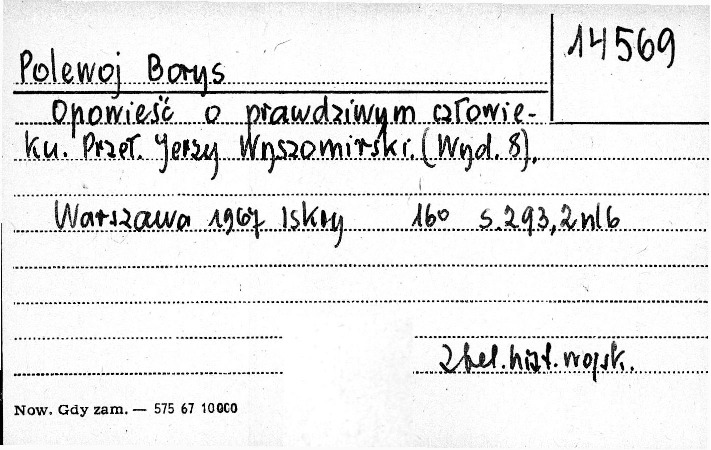 14569
Polewoj Borys
Opowieść o prawdziwym człowie-
ku. Przeł. Jerzy Wyszomirski. (Wyd. 8).
Warszawa 1967 Iskry 16° s. 293, 2 nlb
2 bel. hist. wojsk.
Now. Gdy zam. — 575 67 10000